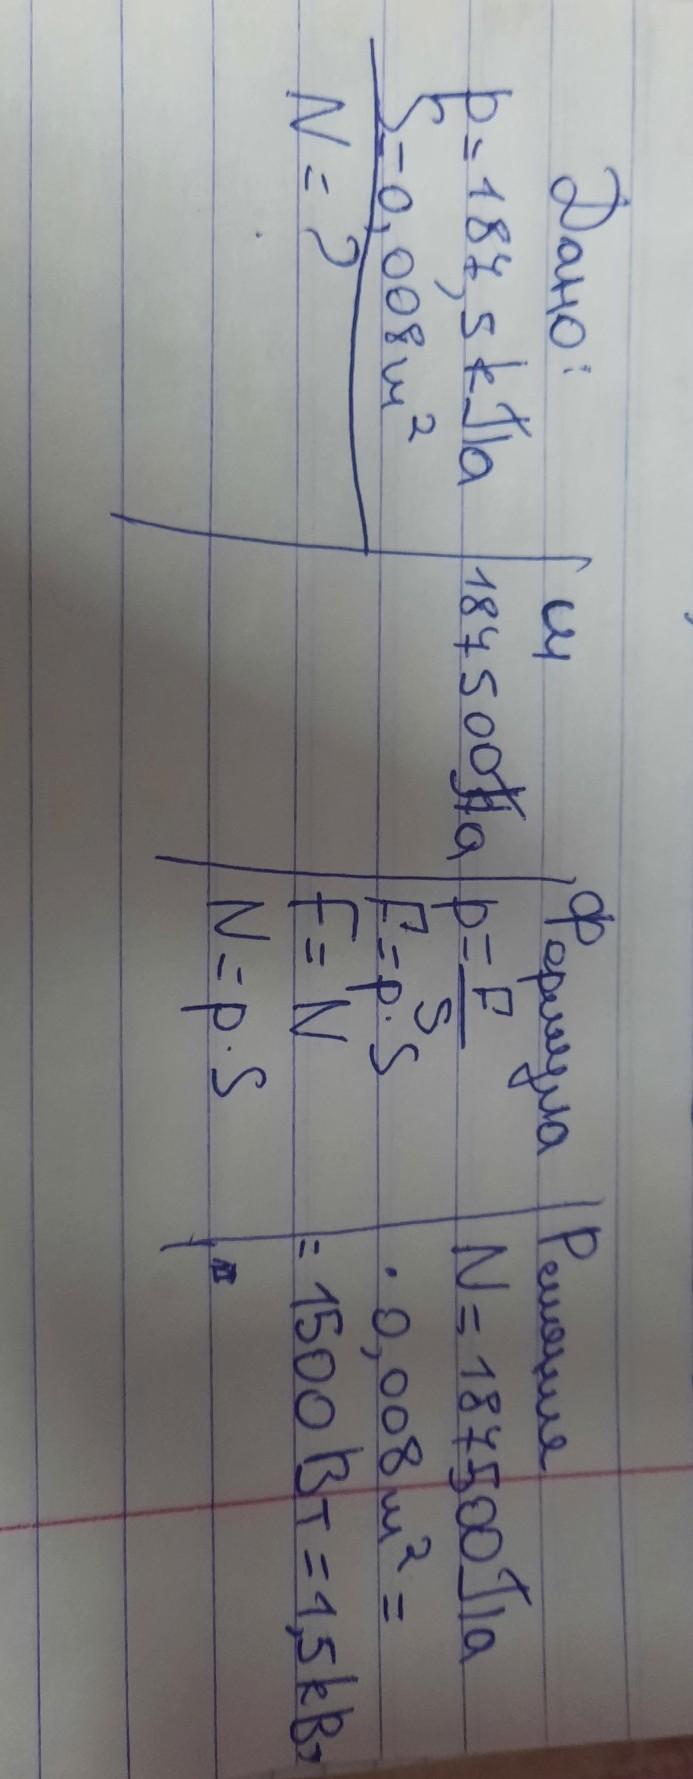 Дано:
p = 187,5 кПа
S = 0,008 м²
N = ?
СИ
187500 Па
Формула
p = F/S
F = p · S
F = N
N = p · S
Решение
N = 187500 Па
· 0,008 м² =
= 1500 Вт = 1,5 кВт